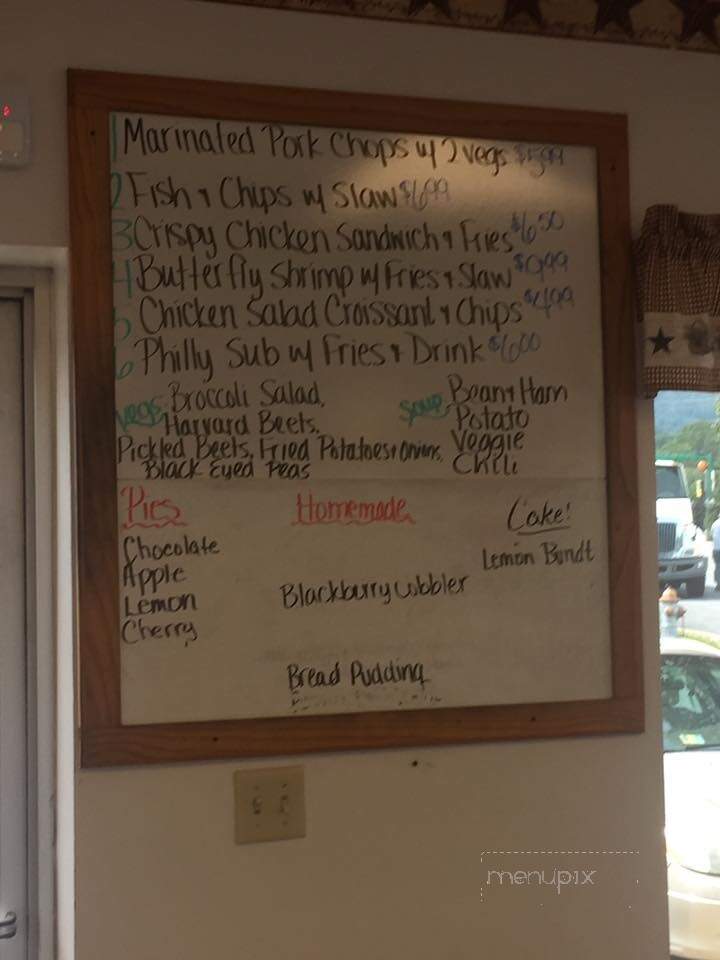 1 Marinated Pork Chops w/ 2 vegs $5.99
2 Fish & Chips w/ Slaw $6.99
3 Crispy Chicken Sandwich & Fries $6.50
4 Butterfly Shrimp w/ Fries & Slaw $9.99
5 Chicken Salad Croissant & Chips $4.99
6 Philly Sub w/ Fries & Drink $6.00
Vegs: Broccoli Salad,
Harvard Beets,
Pickled Beets, Fried Potatoes & Onions,
Black Eyed Peas
Soup Bean & Ham
Potato
Veggie
Chili
Pies
Chocolate
Apple
Lemon
Cherry
Homemade
Blackburry Cobbler
Bread Pudding
Cake!
Lemon Bundt
menupix